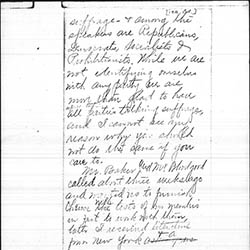 suffrage & among the
speakers are Republicans,
Democrats, Socialists &
Prohibitionists. While we are
not identifying ourselves
with any party we are
more than glad to have
all parties talking suffrage,
and I cannot see any
reason why you should
not do the same if you
care to.
Mrs. Barker and Mrs. Blodgood
called about three weeks ago
and me to
them the lists of members
in just to work with them,
lists I received
from New York